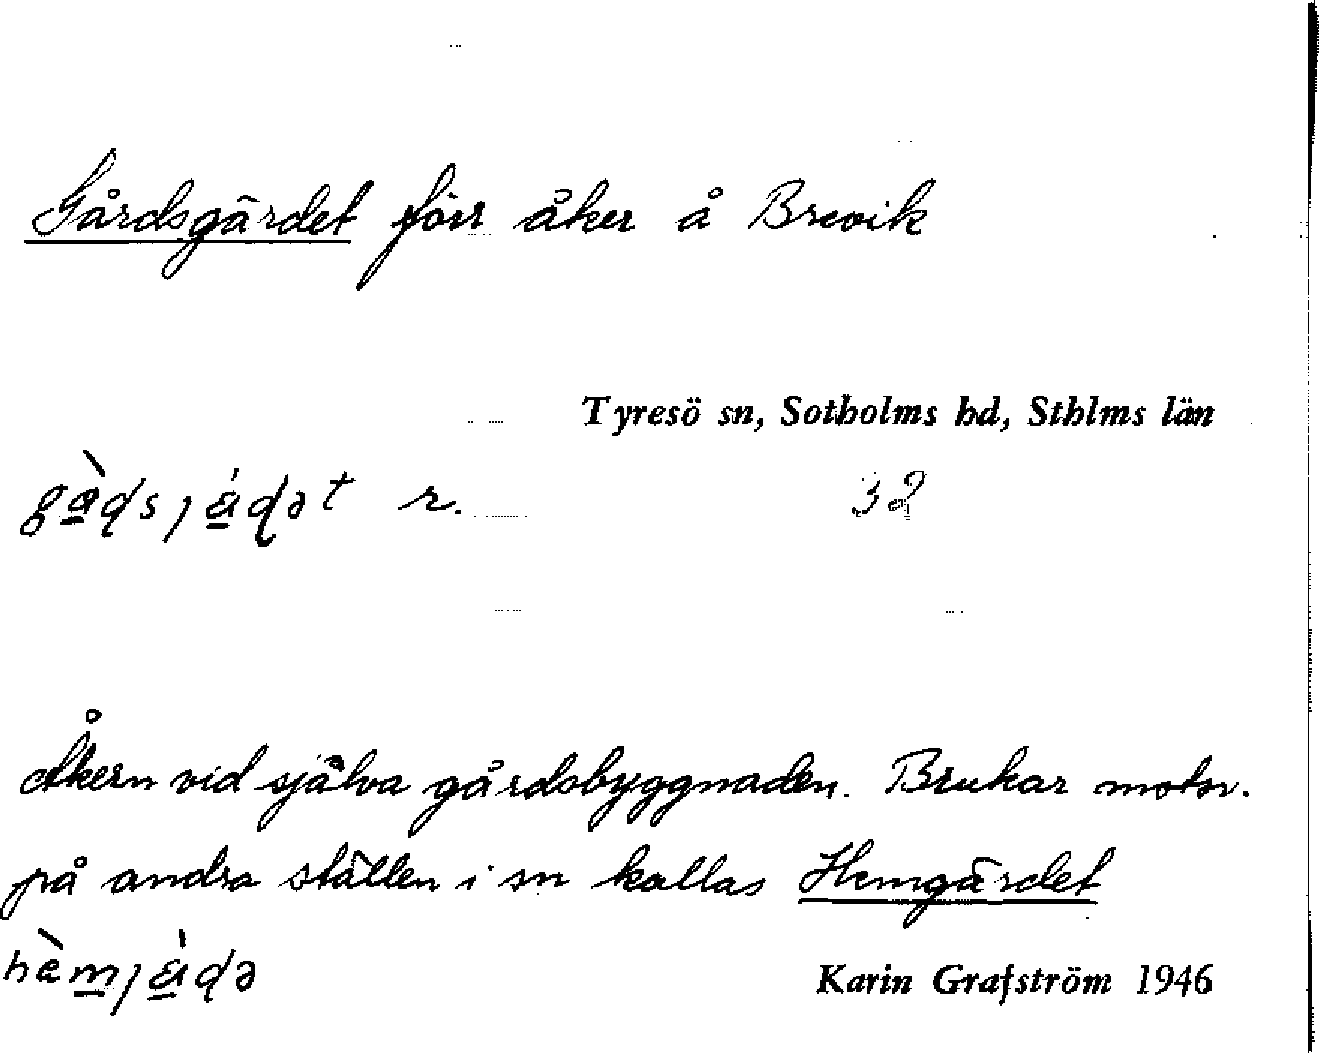 Gårdsgärdet förr åker å Brevik
Tyresö sn, Sotholms hd, Sthlms län
gàɖsjáɖət r. 32
Åkern vid själva gårdsbyggnaden. Brukar motsv.
på andra ställen i sn kallas Hemgärdet
hèmjáɖə
Karin Grafström 1946